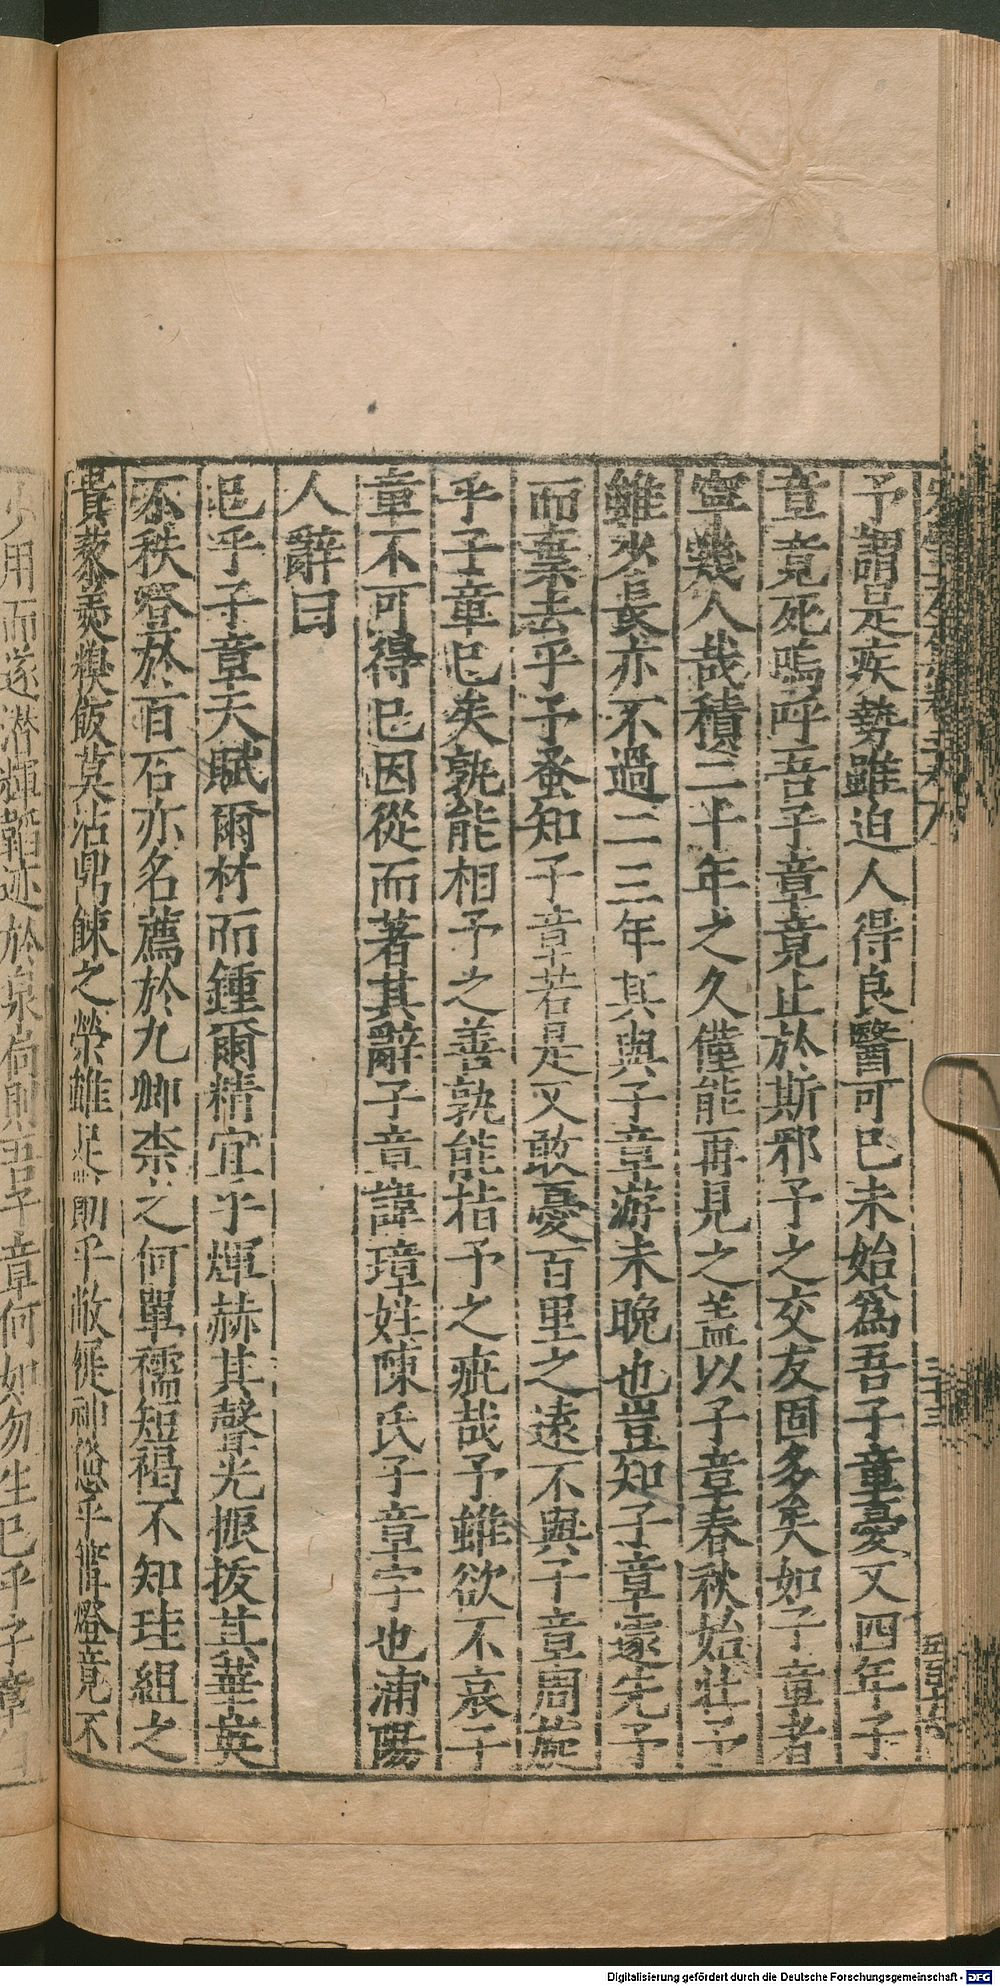 予謂是疾勢雖迫人得良醫可已未始為吾子章憂又四年子
章竟死嗚呼吾子章竟止於斯邪予之交友固多矣如子章者
寧幾人哉積二十年之久僅能再見之蓋以子章春秋始壯予
雖少長亦不過二三年其與子章游未晚也豈知子章遽先予
而棄去乎予蚤知子章若是又敢憂百里之遠不與子章周旋
乎子章已矣孰能相予之善孰能指予之疵哉予雖欲不哀子
章不可得已因從而著其辭子章諱璋姓陳氏子章字也浦陽
人辭曰
邑乎子章天賦爾材而鍾爾精宜乎煇赫其聲光振拔其華英
不秩登於百石亦名薦於九卿柰之何單襦短褐不知珪組之
貴藜羹糗飯莫沾鼎餗之榮雖足前乎敝縰神愁乎篝燈竟不
少用而遂潜輝韜迹於泉尚則吾子章何如勿生已乎子章
三十三
Digitalisierung gefördert durch die Deutsche Forschungsgemeinschaft - DFG